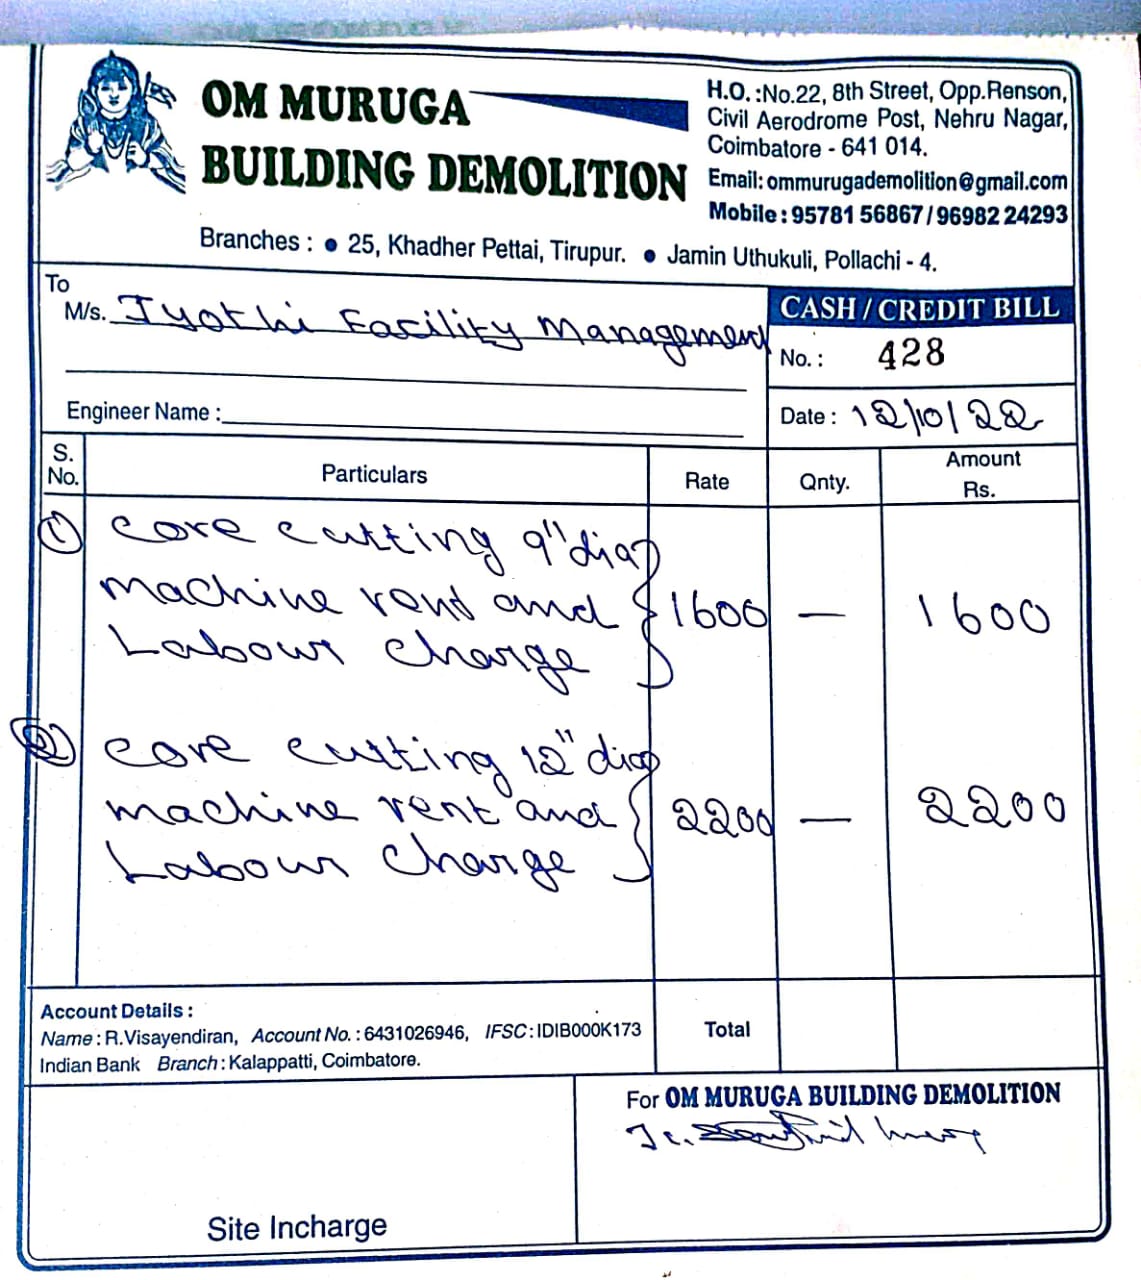 OM MURUGA
BUILDING DEMOLITION
H.O.:No.22, 8th Street, Opp.Renson,
Civil Aerodrome Post, Nehru Nagar,
Coimbatore - 641 014.
Email: ommurugademolition@gmail.com
Mobile : 95781 56867 / 96982 24293
Branches : ● 25, Khadher Pettai, Tirupur. ● Jamin Uthukuli, Pollachi - 4.
To
M/s. Jyothi Facility Management
CASH / CREDIT BILL
No. : 428
Engineer Name :
Date : 12/10/22
S. No. Particulars Rate Qnty. Amount Rs.
① core cutting 9" dia
machine rent and } 1600 — 1600
Labour charge
② core cutting 12" dia
machine rent and } 2200 — 2200
Labour charge
Account Details :
Name : R.Visayendiran, Account No. : 6431026946, IFSC : IDIB000K173
Indian Bank Branch : Kalappatti, Coimbatore.
Total
For OM MURUGA BUILDING DEMOLITION
Site Incharge